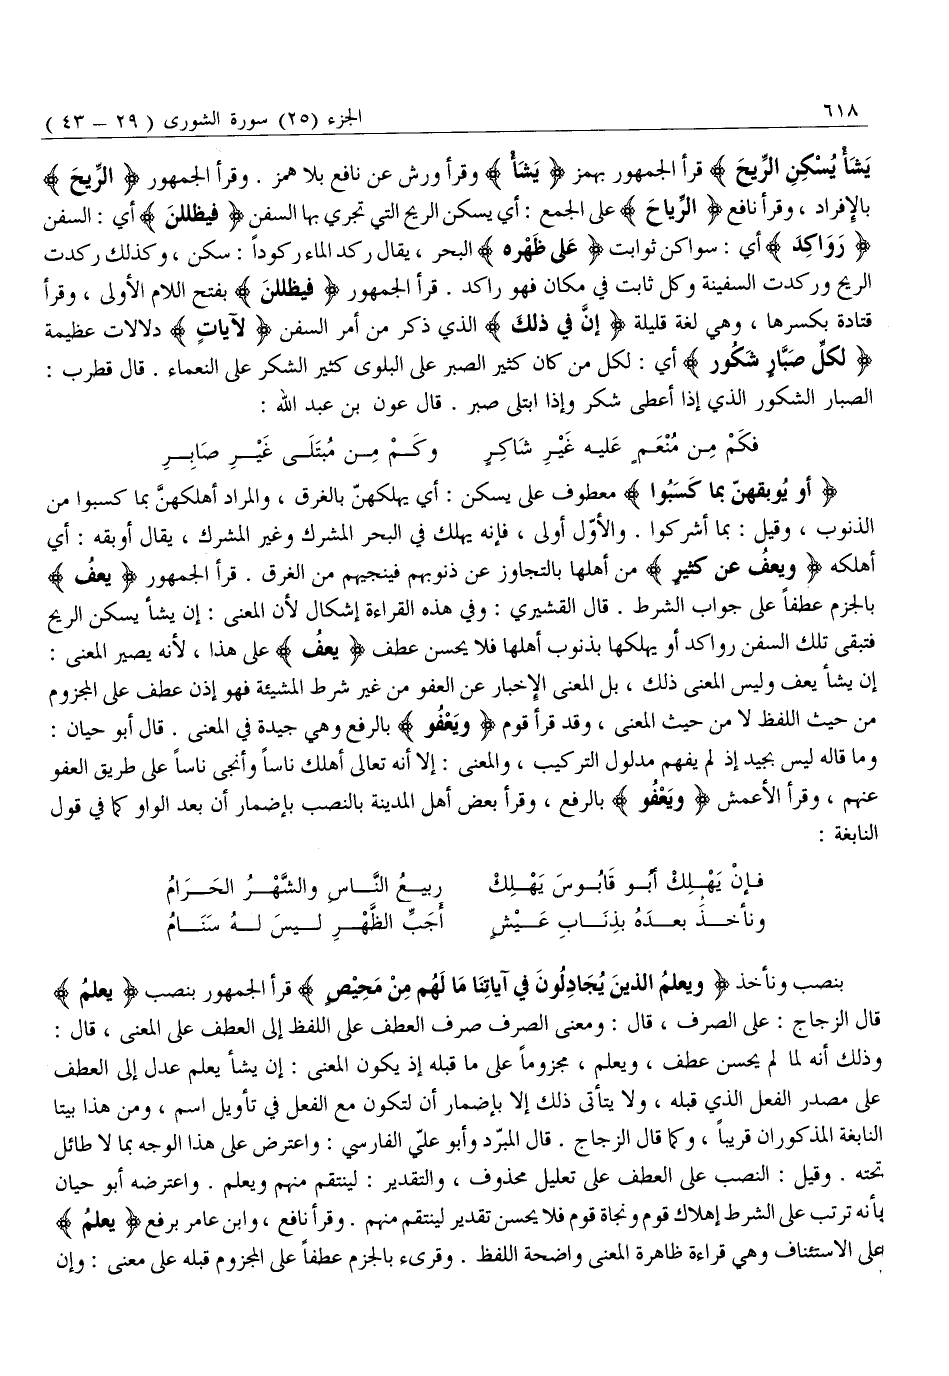 ٦١٨
الجزء (٢٥) سورة الشورى ( ٢٩ – ٤٣ )
يَشَأْ يُسْكِنِ الرِّيحَ ﴾ قرأ الجمهور بهمز ﴿ يَشَأْ ﴾ وقرأ ورش عن نافع بلا همز . وقرأ الجمهور ﴿ الرِّيحَ ﴾
بالإفراد ، وقرأ نافع ﴿ الرِّياحَ ﴾ على الجمع : أي يسكن الريح التي تجري بها السفن ﴿ فيظللنَ ﴾ أي : السفن
﴿ رَوَاكِدَ ﴾ أي : سواكن ثوابت ﴿ عَلى ظَهْرِه ﴾ البحر ، يقال ركد الماء ركوداً : سكن ، وكذلك ركدت
الريح وركدت السفينة وكل ثابت في مكان فهو راكد . قرأ الجمهور ﴿ فيظللنَ ﴾ بفتح اللام الأولى ، وقرأ
قتادة بكسرها ، وهي لغة قليلة ﴿ إنَّ في ذلكَ ﴾ الذي ذكر من أمر السفن ﴿ لآياتٍ ﴾ دلالات عظيمة
﴿ لكلِّ صبَّارٍ شكُور ﴾ أي : لكل من كان كثير الصبر على البلوى كثير الشكر على النعماء . قال قطرب :
الصبار الشكور الذي إذا أعطي شكر وإذا ابتلي صبر . قال عون بن عبد الله :
فكَمْ مِـن مُنْعَمٍ عَليـه غَيْرِ شَاكِـرٍ وكَـــمْ مِــن مُبتَلَــى غَيْــرِ صَابِــرِ
﴿ أو يُوبقهنّ بما كَسَبُوا ﴾ معطوف على يسكن : أي يهلكهنّ بالغرق ، والمراد أهلكهنَّ بما كسبوا من
الذنوب ، وقيل : بما أشركوا . والأوّل أولى ، فإنه يهلك في البحر المشرك وغير المشرك ، يقال أوبقه : أي
أهلكه ﴿ ويعفُ عن كثيرٍ ﴾ من أهلها بالتجاوز عن ذنوبهم فينجيهم من الغرق . قرأ الجمهور ﴿ يعفُ ﴾
بالجزم عطفاً على جواب الشرط . قال القشيري : وفي هذه القراءة إشكال لأن المعنى : إن يشأ يسكن الريح
فتبقى تلك السفن رواكد أو يهلكها بذنوب أهلها فلا يحسن عطف ﴿ يعفُ ﴾ على هذا ، لأنه يصير المعنى :
إن يشأ يعف وليس المعنى ذلك ، بل المعنى الإخبار عن العفو من غير شرط المشيئة فهو إذن عطف على المجزوم
من حيث اللفظ لا من حيث المعنى ، وقد قرأ قوم ﴿ ويَعْفُو ﴾ بالرفع وهي جيدة في المعنى . قال أبو حيان :
وما قاله ليس بجيد إذ لم يفهم مدلول التركيب ، والمعنى : إلا أنه تعالى أهلك ناساً وأنجى ناساً على طريق العفو
عنهم ، وقرأ الأعمش ﴿ ويَعْفُو ﴾ بالرفع ، وقرأ بعض أهل المدينة بالنصب بإضمار أن بعد الواو كما في قول
النابغة :
فـإنْ يَهْـلِكْ أبُـو قَابُـوسَ يَهْـلِكْ ربيـعُ النَّـاسِ والشَّهْـرُ الحَـرَامُ
ونأخــذَ بعـدَهُ بِذنَــابِ عَيْـشٍ أجَبِّ الظَّهْـرِ لــيسَ لــهُ سَنَــامُ
بنصب ونأخذ ﴿ ويعلمُ الذينَ يُجَادِلُونَ في آياتِنَا مَا لَهُم مِنْ مَحِيْصٍ ﴾ قرأ الجمهور بنصب ﴿ يعلمَ ﴾
قال الزجاج : على الصرف ، قال : ومعنى الصرف صرف العطف على اللفظ إلى العطف على المعنى ، قال :
وذلك أنه لما لم يحسن عطف ، ويعلم ، مجزوماً على ما قبله إذ يكون المعنى : إن يشأ يعلم عدل إلى العطف
على مصدر الفعل الذي قبله ، ولا يتأتى ذلك إلا بإضمار أن لتكون مع الفعل في تأويل اسم ، ومن هذا بيتا
النابغة المذكوران قريباً ، وكما قال الزجاج . قال المبرّد وأبو عليّ الفارسي : واعترض على هذا الوجه بما لا طائل
تحته . وقيل : النصب على العطف على تعليل محذوف ، والتقدير : لينتقم منهم ويعلم . واعترضه أبو حيان
بأنه ترتب على الشرط إهلاك قوم ونجاة قوم فلا يحسن تقدير لينتقم منهم . وقرأ نافع ، وابن عامر برفع ﴿ يعلمُ ﴾
على الاستئناف وهي قراءة ظاهرة المعنى واضحة اللفظ . وقرىء بالجزم عطفاً على المجزوم قبله على معنى : وإن